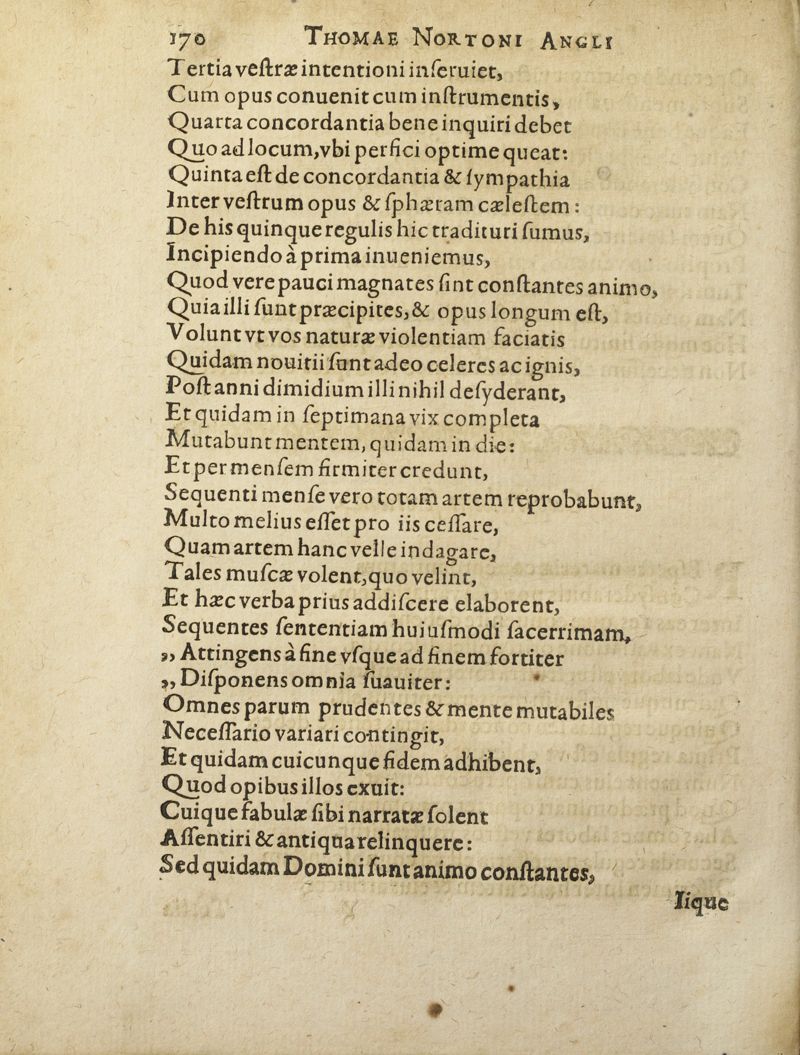 170 THOMAE NORTONI ANGLI
Tertia veſtræ intentioni inſeruiet,
Cum opus conuenit cum inſtrumentis,
Quarta concordantia bene inquiri debet
Quo ad locum, vbi perfici optime queat:
Quinta eſt de concordantia & ſympathia
Inter veſtrum opus & ſphæram cæleſtem:
De his quinque regulis hic tradituri ſumus,
Incipiendo à prima inueniemus,
Quod vere pauci magnates ſint conſtantes animo,
Quia illi ſunt præcipites, & opus longum eſt,
Volunt vt vos naturæ violentiam faciatis
Quidam nouitii ſunt adeo celeres ac ignis,
Poſt anni dimidium illi nihil deſyderant,
Et quidam in ſeptimana vix completa
Mutabunt mentem, quidam in die:
Et per menſem firmiter credunt,
Sequenti menſe vero totam artem reprobabunt,
Multo melius eſſet pro iis ceſſare,
Quam artem hanc velle indagare,
Tales muſcæ volent, quo velint,
Et hæc verba prius addiſcere elaborent,
Sequentes ſententiam huiuſmodi ſacerrimam,
„ Attingens à fine vſque ad finem fortiter
„ Diſponens omnia ſuauiter:
Omnes parum prudentes & mente mutabiles
Neceſſario variari contingit,
Et quidam cuicunque fidem adhibent,
Quod opibus illos exuit:
Cuique fabulæ ſibi narratæ ſolent
Aſſentiri & antiqua relinquere:
Sed quidam Domini ſunt animo conſtantes,
Iique